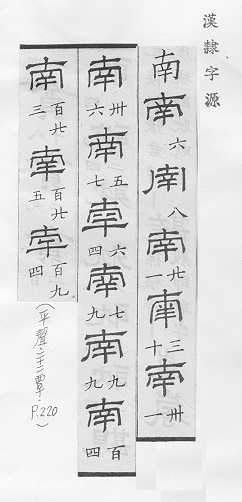 漢隸字源
南南六南八南廿一南三十南卅一
南卅六南五七南六四南七九南九九南百四
南百廿三南百廿五南百九四
(平聲·二十二覃·P.220)